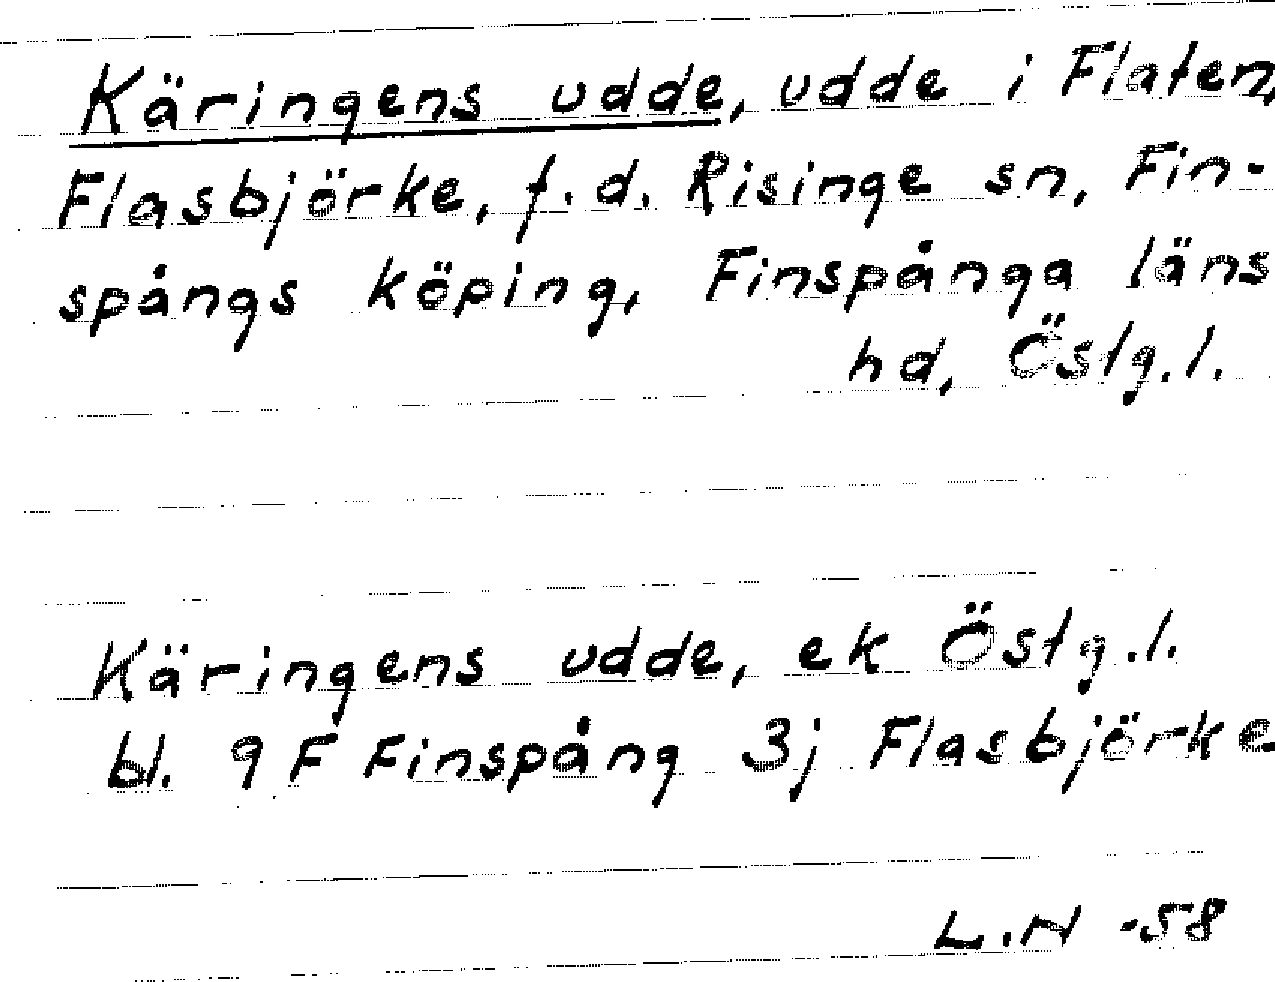 Käringens udde, udde i Flaten,
Flasbjörke, f.d. Risinge sn, Fin-
spångs köping, Finspånga läns
hd, Östg.l.
Käringens udde, ek Östg.l.
bl. 9F Finspång 3j Flasbjörke
L.N -58